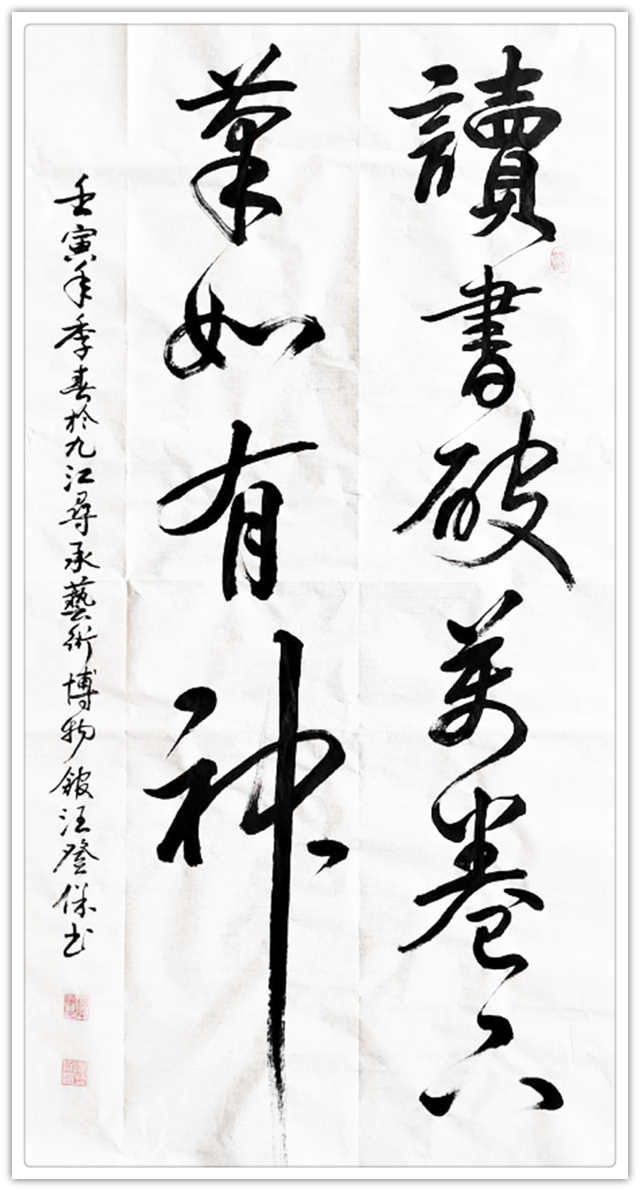 讀書破萬卷下
筆如有神
壬寅年季春於九江尋承藝術博物館汪登保书